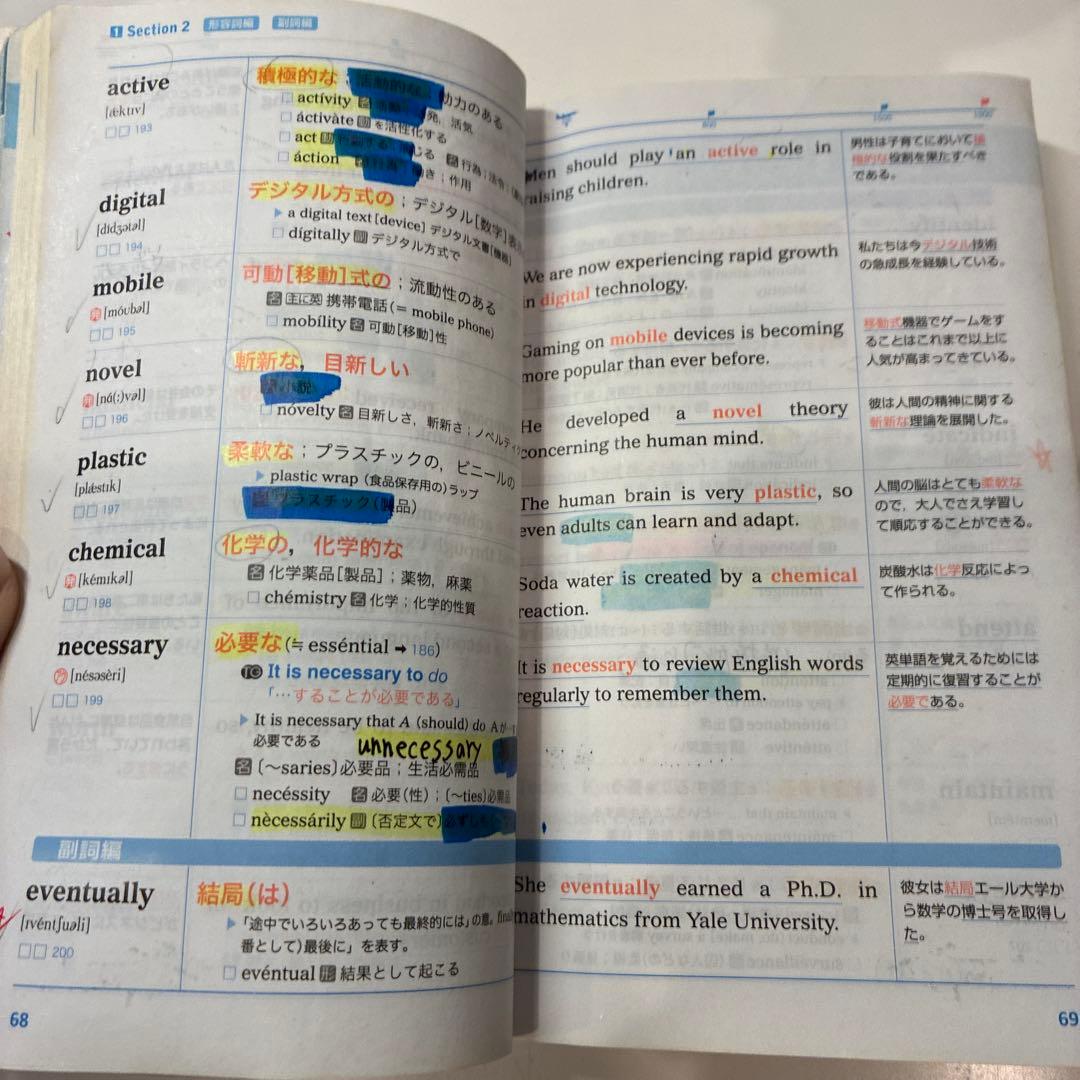 1 Section 2 形容詞編 副詞編
active
[ǽktɪv]
193
積極的な；活動的な 動力のある
actívity 名 活動 発，活気
áctivàte 動 を活性化する
act 動 じる 名 行為；法令
áction 名 行為 働き；作用
Men should play an active role in
raising children.
男性は子育てにおいて積
極的な役割を果たすべき
である。
digital
[dídʒətəl]
194
デジタル方式の；デジタル[数字]表
a digital text [device] デジタル文書[機器]
dígitally 副 デジタル方式で
We are now experiencing rapid growth
in digital technology.
私たちは今デジタル技術
の急成長を経験している。
mobile
発 [móubəl]
195
可動[移動]式の；流動性のある
名 主に英 携帯電話(= mobile phone)
mobílity 名 可動[移動]性
Gaming on mobile devices is becoming
more popular than ever before.
移動式機器でゲームをす
ることはこれまで以上に
人気が高まってきている。
novel
発 [ná(:)vəl]
196
斬新な，目新しい
名 小説
nóvelty 名 目新しさ，斬新さ；ノベルティ
He developed a novel theory
concerning the human mind.
彼は人間の精神に関する
斬新な理論を展開した。
plastic
[plǽstɪk]
197
柔軟な；プラスチックの，ビニールの
plastic wrap (食品保存用の)ラップ
名 プラスチック(製品)
The human brain is very plastic, so
even adults can learn and adapt.
人間の脳はとても柔軟な
ので，大人でさえ学習し
て順応することができる。
chemical
発 [kémɪkəl]
198
化学の，化学的な
名 化学薬品[製品]；薬物，麻薬
chémistry 名 化学；化学的性質
Soda water is created by a chemical
reaction.
炭酸水は化学反応によっ
て作られる。
necessary
ア [nésəsèri]
199
必要な(≒ esséntial ➡ 186)
TG It is necessary to do
「…することが必要である」
It is necessary that A (should) do Aが…す
必要である
unnecessary
名 (~saries)必要品；生活必需品
necéssity 名 必要(性)；(~ties)必需品
nècessárily 副 (否定文で)必ずしも
It is necessary to review English words
regularly to remember them.
英単語を覚えるためには
定期的に復習することが
必要である。
副詞編
eventually
[ɪvéntʃuəli]
200
結局(は)
「途中でいろいろあっても最終的には」の意。final
番として)最後に」を表す。
evéntual 形 結果として起こる
She eventually earned a Ph.D. in
mathematics from Yale University.
彼女は結局エール大学か
ら数学の博士号を取得し
た。
68
69